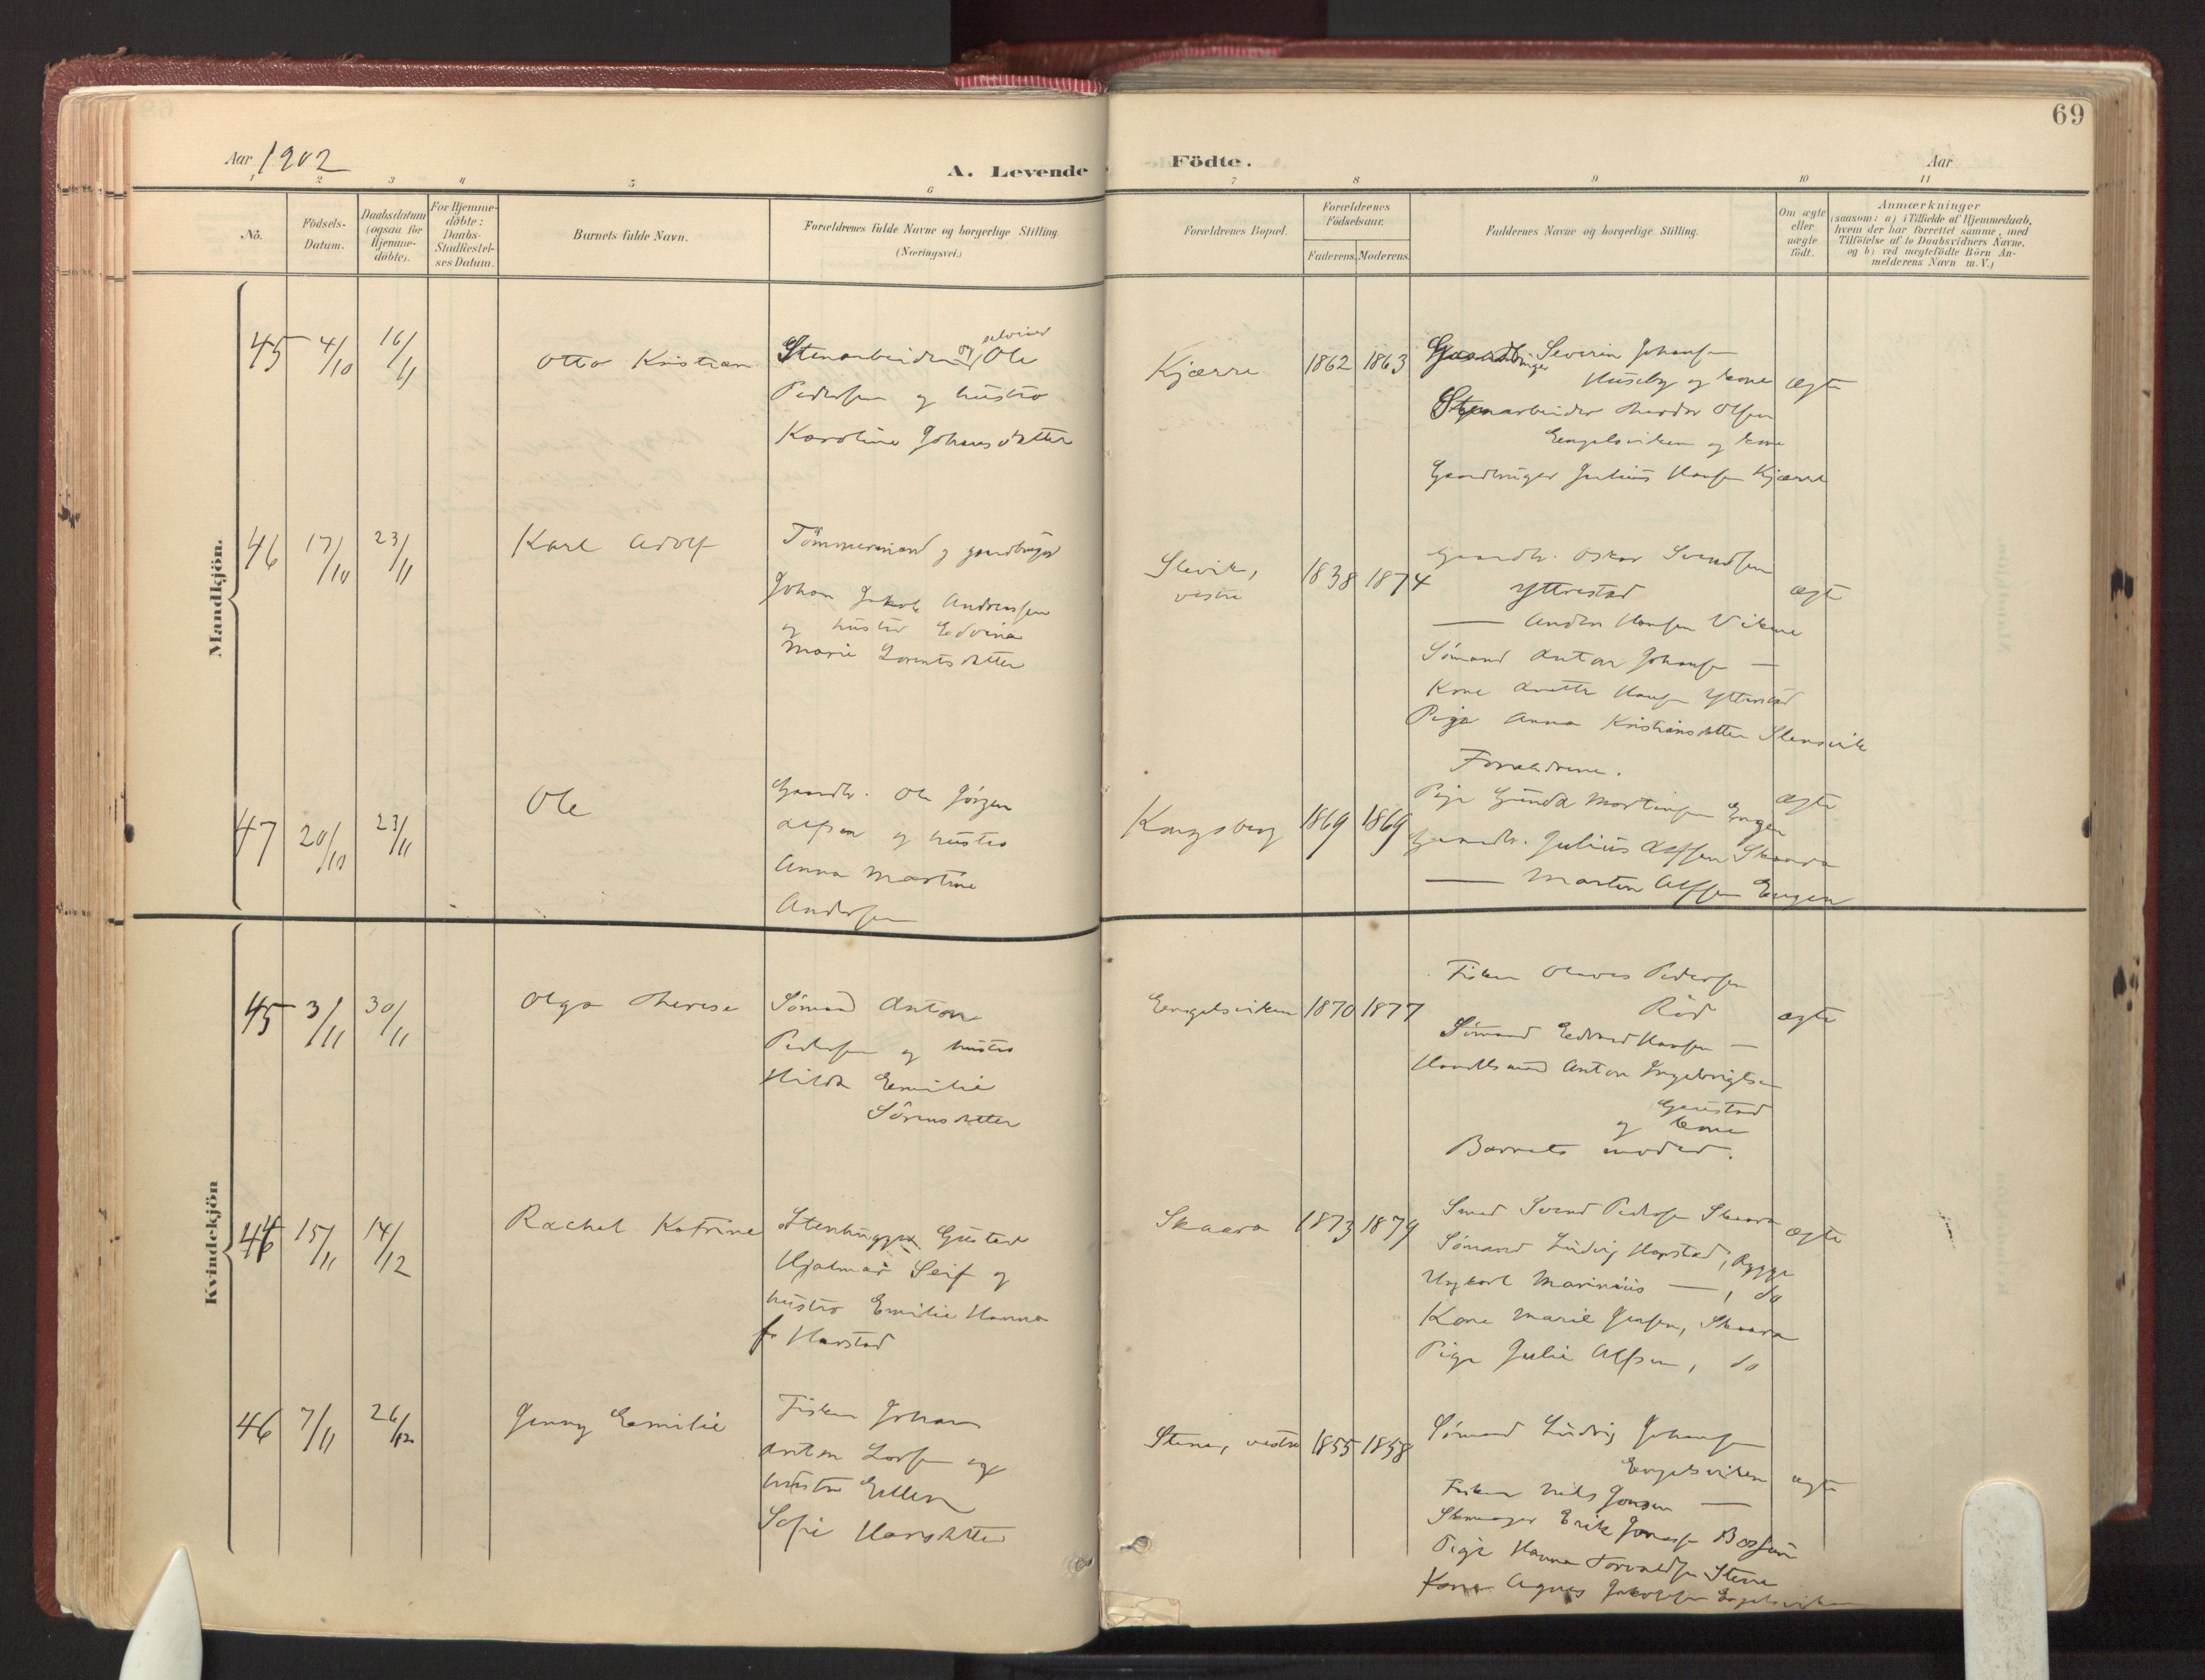 69
Aar 1902
A. Levende Födte.
Aar
1 2 3 4 5 6 7 8 9 10 11
No.
Födsels-Datum.
Daabsdatum (ogsaa for Hjemme-döbte).
For Hjemme-döbte: Daabs-Stadfæstel-ses Datum.
Barnets fulde Navn.
Forældrenes fulde Navne og borgerlige Stilling. (Næringsvei.)
Forældrenes Bopæl.
Forældrenes Födselsaar.
Faderens. Moderens.
Faddernes Navne og borgerlige Stilling.
Om ægte eller uægte födt.
Anmærkninger
(saasom: a) i Tilfælde af Hjemmedaab,
hvem der har forrettet samme, med
Tilföielse af to Daabsvidners Navne,
og b) ved uægtefödte Börn An-
melderens Navn m. V.)
Mandkjön.
45 4/10 16/11
Otto Kristian
Stenarbeider og selveier Ole
Pedersen og hustro
Karoline Johansdatter
Kjærre
1862 1863
Gaardbruger Severin Johansen
Huseby og kone
Stenarbeider Theodor Olsen
Engelsviken og kone
Gaardbruger Julius Hansen Kjærre
ægte
46 17/10 23/11
Karl Adolf
Tömmermand og gaardbruger
Johan Jakob Andreassen
og hustro Edvina
Marie Lorentsdatter
Slevik,
vestre
1838 1874
Gaardb. Oskar Svendsen
Ytterstad
— Anders Hansen Vikene
Sömand Anton Johansen —
Kone Anette Hansen Ytterstad
Pige Anna Kristiansdatter Slevik
ægte
47 20/10 23/11
Ole
Gaardb. Ole Jörgen
Alfsen og hustro
Anna Martine
Andersen
Kongsberg
1869 1869
Forældrene.
Pige Gunda Martinsen Engen
Gaardb. Julius Alfsen Skaara
— Martin Alfsen Engen
ægte
Kvindekjön
45 3/11 30/11
Olga Therese
Sömand Anton
Pedersen og hustro
Hilda Emilie
Sörensdatter
Engelsviken
1870 1877
Fisker Olaves Pedersen
Röd
Sömand Edvard Hansen —
Handelsmand Anton Ingebrigtsen
Gaustad
og kone
Barnets moder.
ægte
46 15/11 14/12
Rachel Katrine
Stenhugger Gustav
Hjalmar Leif og
hustro Emilie Hanna
f. Harstad
Skaara
1873 1879
Smed Svend Pedersen Skaara
Sömand Ludvig Harstad, Rygge
Ungkarl Marinius —, do
Kone Marie Jensen, Skaara
Pige Julie Alfsen, do
ægte
46 7/11 26/12
Jenny Emilie
Fisker Johan
Anton Larsen og
hustro Ellen
Sofie Hansdatter
Stene, vestre
1855 1858
Sömand Ludvig Johansen
Engelsviken
Fisker Nils Jonsen —
Erik Jonassen
Pige Hanna Torvaldsen Stene
Kone Agnes Jakobsen Engelsviken
ægte